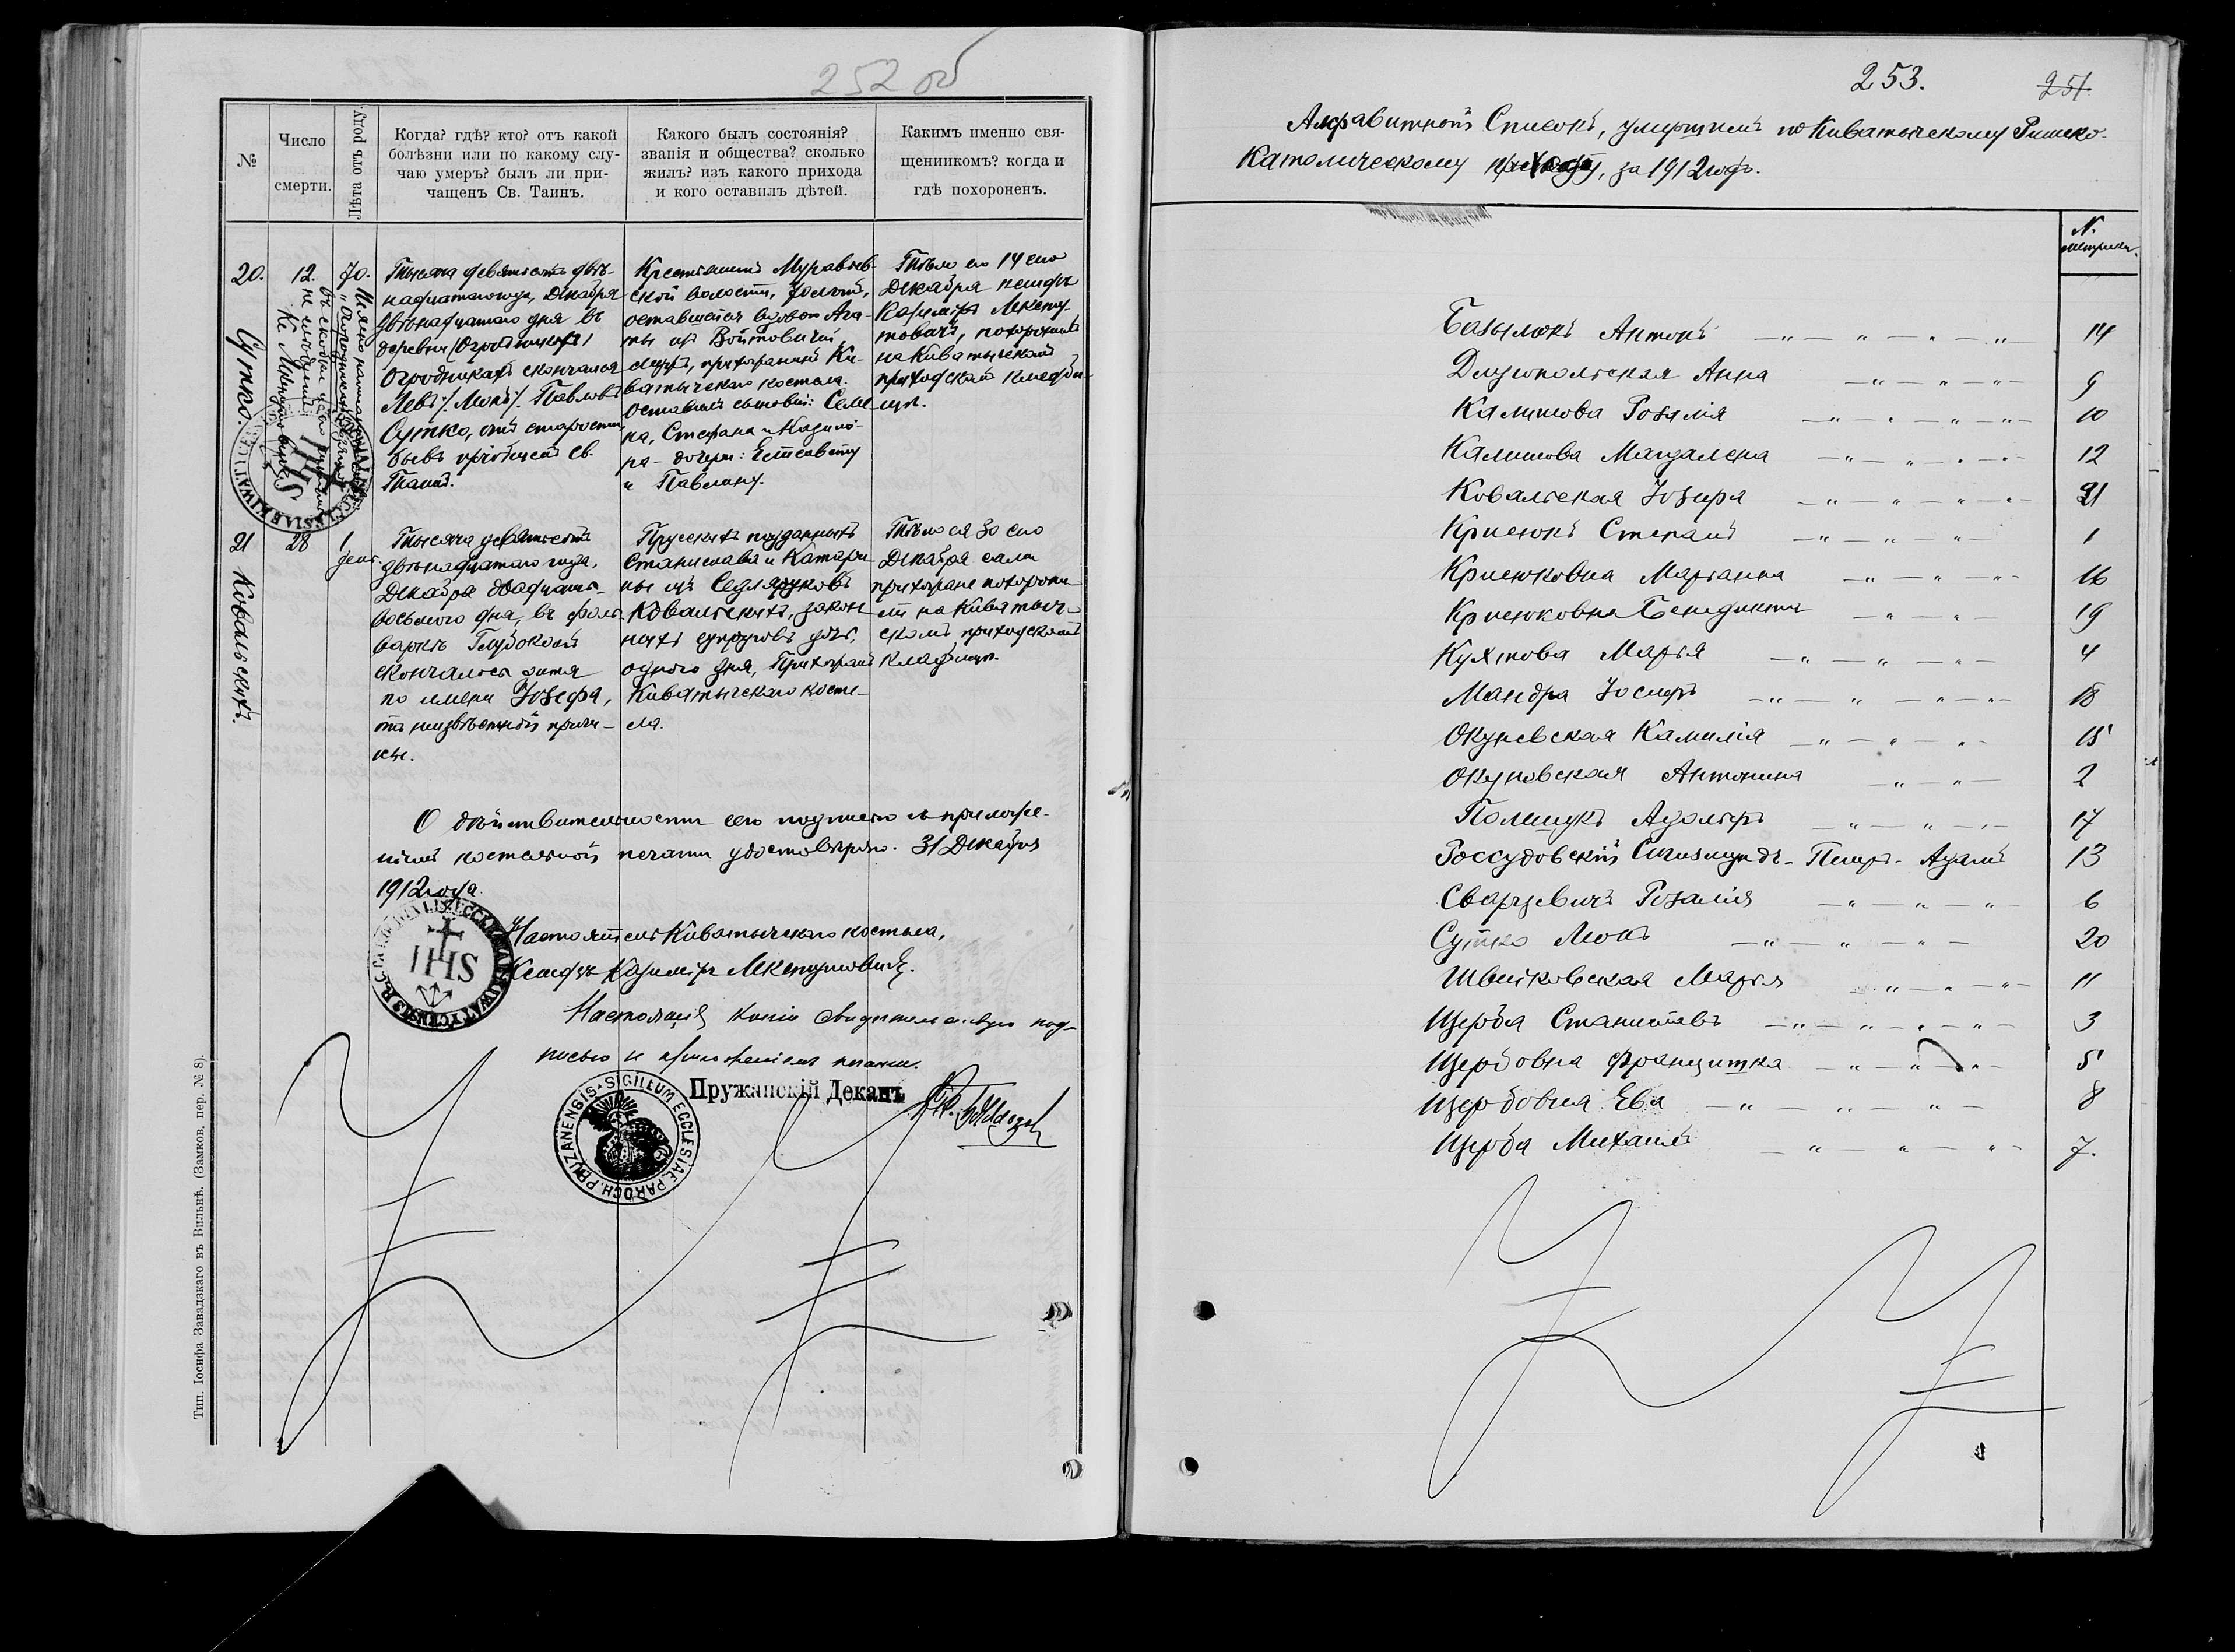 252 об
№
Число
смерти.
Лѣта отъ роду.
Когда? гдѣ? кто? отъ какой
болѣзни или по какому слу-
чаю умеръ? былъ ли при-
чащенъ Св. Таинъ.
Какого былъ состоянія?
званія и общества? сколько
жилъ? изъ какого прихода
и кого оставилъ дѣтей.
Какимъ именно свя-
щенникомъ? когда и
гдѣ похороненъ.
20.
Сутко.
12.
70.
Тысяча девятьсотъ двѣ-
надцатаго года, Декабря
двѣнадцатаго дня въ
деревнѣ
Огродникахъ скончался
Левъ /Леонъ/ Павловъ
Сутко, отъ старости
бывъ пріобщенъ Св.
Таинъ.
Крестьянинъ Муравьев-
ской волости,
оставшагося вдовою Ага-
ты изъ Войтовичей
мужъ, прихожанинъ Ки-
ватычскаго костела.
Оставилъ сыновей: Семе-
на, Стефана и Казими-
ра - дочери: Елисавету
и Павлину.
Тѣло его 14 сего
Декабря ксендзъ
Казиміръ Мкенту-
мовичъ, похоронилъ
на Киватычскомъ
приходскомъ кладби-
щѣ.
21
Ковальскихъ.
28
1
день
Тысяча девятьсотъ
двѣнадцатаго года,
Декабря двадцать-
восьмого дня, въ фоль-
варкѣ Глубокомъ
скончалось дитя
по имени Іозефа,
отъ неизвѣстной причи-
ны.
Прусскихъ подданныхъ
Станислава и Катари-
ны изъ
Ковальскихъ, закон-
ныхъ супруговъ дочь,
одного дня, Прихожанъ
Киватычскаго косте-
ла.
Тѣло ея 30 сего
Декабря сами
прихожане похорони-
ли на Киватыч-
скомъ приходскомъ
кладбищѣ.
О дѣйствительности сего подписью и приложе-
ніемъ костельной печати удостовѣряю. 31 Декабря
1912 года.
Настоятель Киватычскаго костела,
Ксендзъ Казиміръ
IHS
Настоящую копію свидѣтельствую под-
писью и приложеніемъ печати.
Пружанскій Деканъ
SIGILLUM ECCLESIAE PAROCH. PRUZANENSIS
Тип. Іосифа Завадзкаго въ Вильнѣ. (Замков. пер. № 8).
253.
251.
Алфавитный Списокъ, умершимъ по Киватычскому Римско-
Католическому приходу, за 1912 годъ.
N.
метрики.
Базылюкъ Антонъ 14
Длугопольская Анна 9
Калишова Розалія 10
Калишова Магдалена 12
Ковальская Іозефа 21
Крисюкъ Степанъ 1
Крисюковна Маріанна 16
Крисюковна Бенедикта 19
Кухтова Марія 4
Мандра Іосифъ 18
Окуневская Камилія 15
Окуновская Антонина 2
Полищукъ Адольфъ 17
Россудовскій Сигизмундъ-Петръ-Адамъ 13
Сварцевичъ Розалія 6
Сутко Леонъ 20
Швайковская Марія 11
Щерба Станиславъ 3
Щербовна Францишка 5
Щербовна Ева 8
Щерба Михаилъ 7.